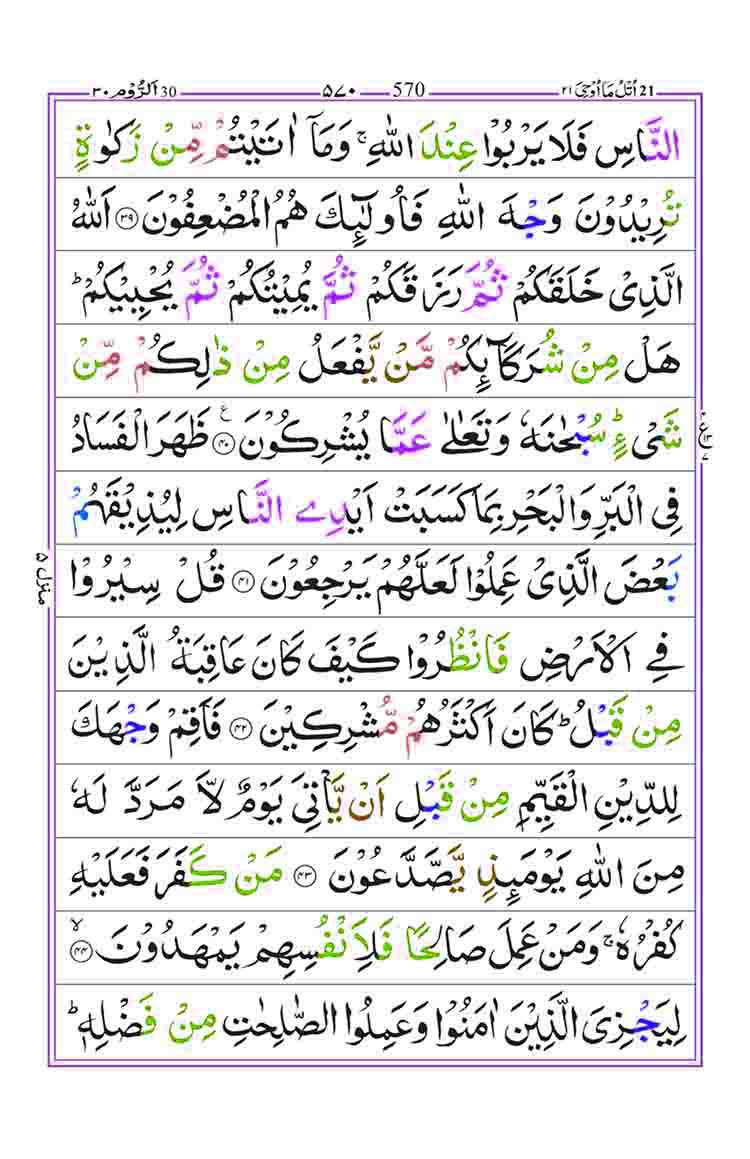 اَلرُّوۡم ٣٠ 30 ۵۷۰ 570 اُتۡلُ مَاۤ اُوۡحِیَ ٢١ 21
النَّاسِ فَلَا یَرۡبُوۡا عِنۡدَ اللّٰهِ ۚ وَمَاۤ اٰتَیۡتُمۡ مِّنۡ زَكٰوةٍ
تُرِیۡدُوۡنَ وَجۡهَ اللّٰهِ فَاُولٰٓئِكَ هُمُ الۡمُضۡعِفُوۡنَ ﴿۳۹﴾ اَللّٰهُ
الَّذِیۡ خَلَقَكُمۡ ثُمَّ رَزَقَكُمۡ ثُمَّ یُمِیۡتُكُمۡ ثُمَّ یُحۡیِیۡكُمۡ ؕ
هَلۡ مِنۡ شُرَكَآئِكُمۡ مَّنۡ یَّفۡعَلُ مِنۡ ذٰلِكُمۡ مِّنۡ
شَیۡءٍ ؕ سُبۡحٰنَهٗ وَتَعٰلٰی عَمَّا یُشۡرِكُوۡنَ ﴿۴۰﴾ ع ظَهَرَ الۡفَسَادُ
فِی الۡبَرِّ وَالۡبَحۡرِ بِمَا كَسَبَتۡ اَیۡدِی النَّاسِ لِیُذِیۡقَهُمۡ
بَعۡضَ الَّذِیۡ عَمِلُوۡا لَعَلَّهُمۡ یَرۡجِعُوۡنَ ﴿۴۱﴾ قُلۡ سِیۡرُوۡا
فِی الۡاَرۡضِ فَانۡظُرُوۡا كَیۡفَ كَانَ عَاقِبَةُ الَّذِیۡنَ
مِنۡ قَبۡلُ ؕ كَانَ اَكۡثَرُهُمۡ مُّشۡرِكِیۡنَ ﴿۴۲﴾ فَاَقِمۡ وَجۡهَكَ
لِلدِّیۡنِ الۡقَیِّمِ مِنۡ قَبۡلِ اَنۡ یَّاۡتِیَ یَوۡمٌ لَّا مَرَدَّ لَهٗ
مِنَ اللّٰهِ یَوۡمَئِذٍ یَّصَّدَّعُوۡنَ ﴿۴۳﴾ مَنۡ كَفَرَ فَعَلَیۡهِ
كُفۡرُهٗ ۚ وَمَنۡ عَمِلَ صَالِحًا فَلِاَنۡفُسِهِمۡ یَمۡهَدُوۡنَ ۙ ﴿۴۴﴾
لِیَجۡزِیَ الَّذِیۡنَ اٰمَنُوۡا وَعَمِلُوا الصّٰلِحٰتِ مِنۡ فَضۡلِهٖ ؕ
منزل ۵